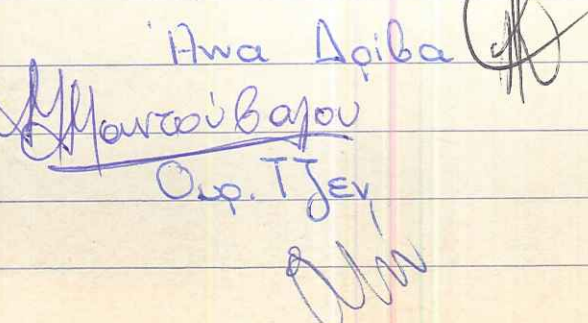 Άννα Δρίβα
Μαντούβαλου
Ουρ. Τζεν